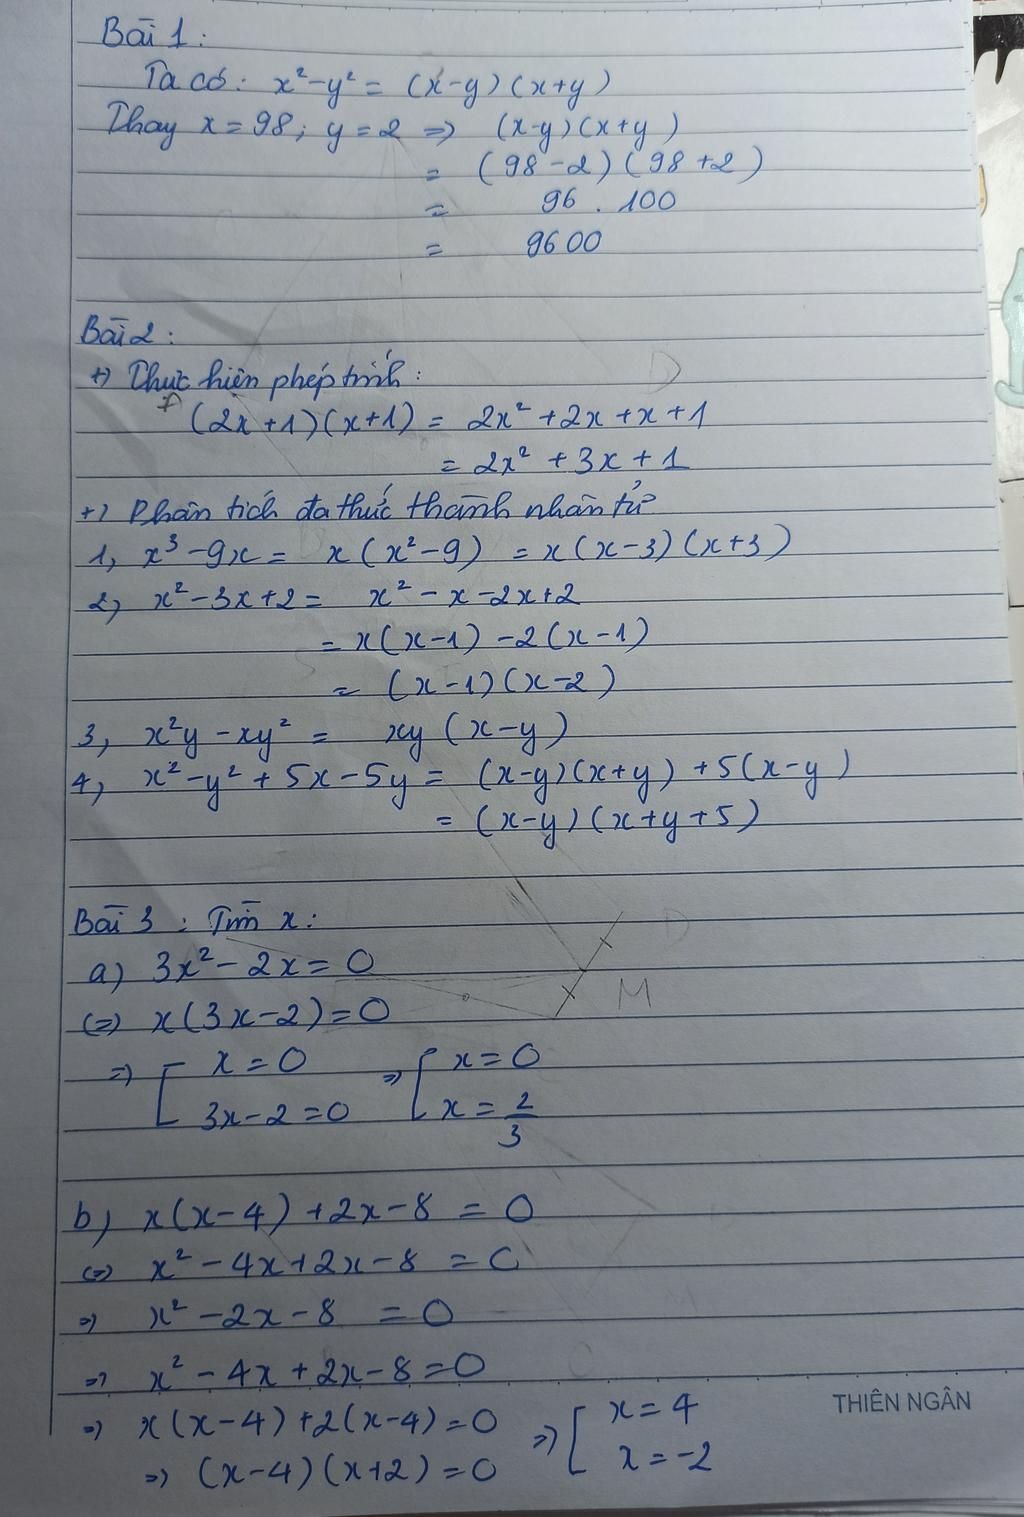 Bài 1:
Ta có: x² - y² = (x-y)(x+y)
Thay x = 98; y = 2 => (x-y)(x+y)
= (98-2)(98+2)
= 96 . 100
= 9600
Bài 2:
+) Thực hiện phép tính:
(2x+1)(x+1) = 2x² + 2x + x + 1
= 2x² + 3x + 1
+) Phân tích đa thức thành nhân tử
1, x³ - 9x = x(x²-9) = x(x-3)(x+3)
2, x² - 3x + 2 = x² - x - 2x + 2
= x(x-1) - 2(x-1)
= (x-1)(x-2)
3, x²y - xy² = xy(x-y)
4, x² - y² + 5x - 5y = (x-y)(x+y) + 5(x-y)
= (x-y)(x+y+5)
Bài 3: Tìm x:
a) 3x² - 2x = 0
<=> x(3x-2) = 0
=> [ x = 0 => [ x = 0
3x - 2 = 0 x = 2/3
b) x(x-4) + 2x - 8 = 0
<=> x² - 4x + 2x - 8 = 0
=> x² - 2x - 8 = 0
=> x² - 4x + 2x - 8 = 0
=> x(x-4) + 2(x-4) = 0 => [ x = 4
=> (x-4)(x+2) = 0 x = -2
THIÊN NGÂN
D
D
M